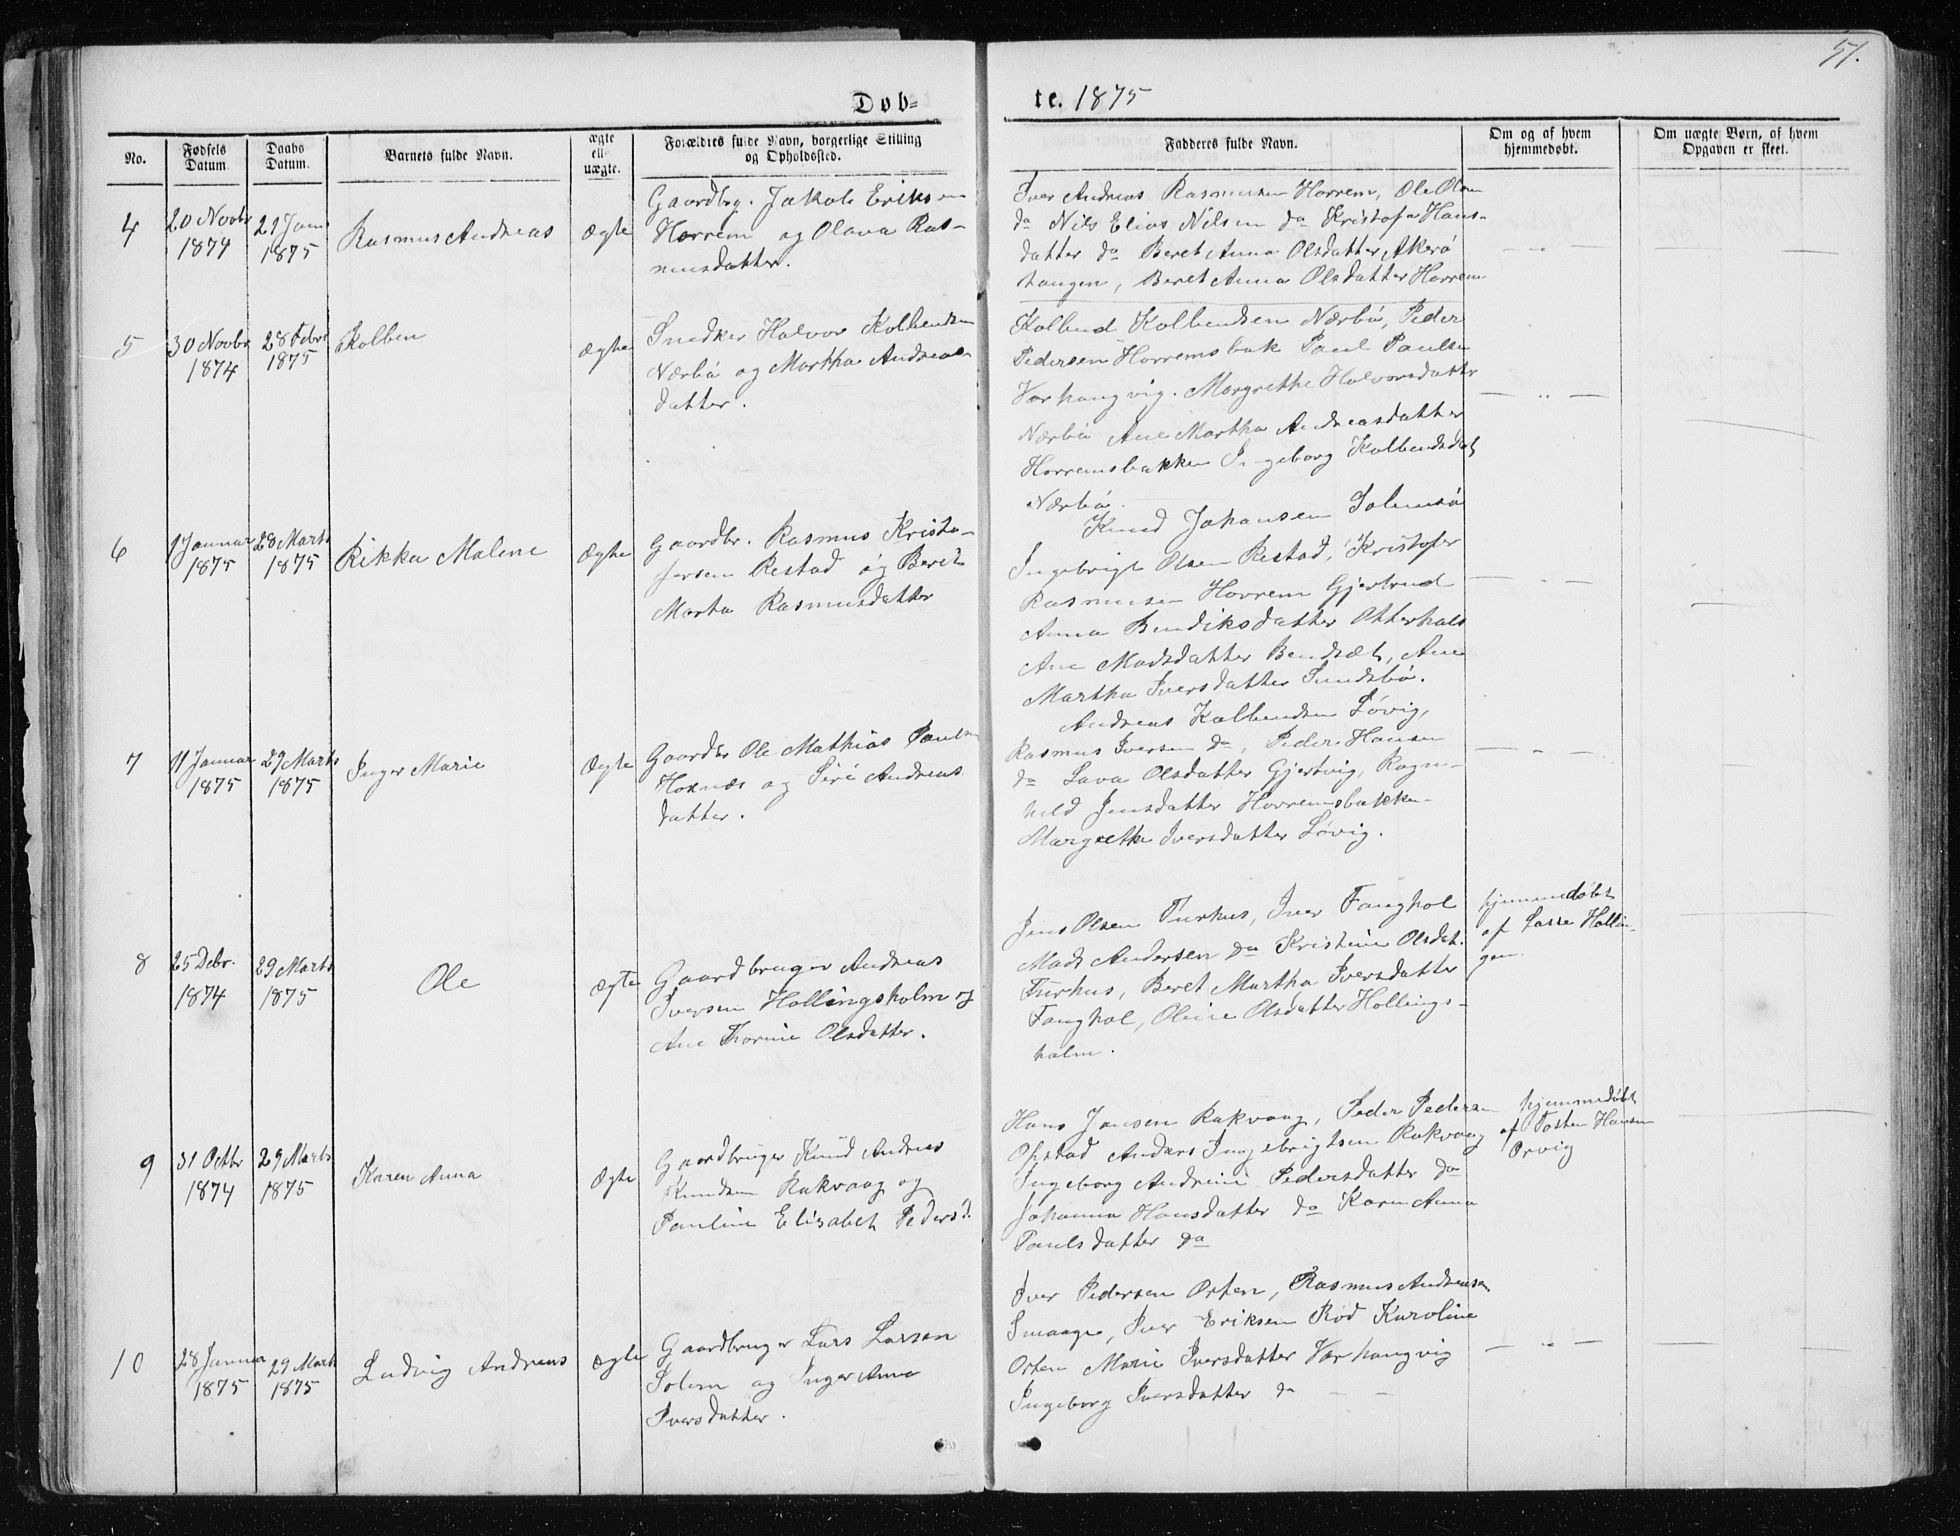 51.
Døb=
te. 1875
No.
Fødsels Datum
Daabs Datum.
Barnets fulde Navn.
ægte ell. uægte.
Forældres fulde Navn, borgerlige Stilling og Opholdssted.
Fadderes fulde Navn.
Om og af hvem hjemmedøbt.
Om uægte Børn, af hvem Opgaven er skeet.
4
20 Novbr 1874
21 Janr 1875
Rasmus Andreas
Ægte
Gaardbrg. Jakob Eriksen
Horrem og Olava Ras-
musdatter.
Iver Andreas Rasmusen Horrem, Ole Olsen
do Nils Elias Nilsen do Kristofa Hans-
datter do Beret Anna Olsdatter Akerö
haugen, Beret Anna Olsdatter Horrem
— " —
5
30 Novbr 1874
28 Febr 1875
Kolben
Ægte
Snedker Halvor Kolbensen
Nærbö og Martha Andreas-
datter.
Kolbend Kolbendsen Nærbö, Peder
Pedersen Horremsbak Paul Paulsen
Varhaugvig. Margrethe Halvorsdatter
Nærbö Ane Martha Andreasdatter
Horremsbakken Ingeborg Kolbendsdat
Nærbö.
— " —
6
1 Januar 1875
28 Marts 1875
Rikka Malene
Ægte
Gaardbr. Rasmus Kristo-
fersen Restad og Berit
Marta Rasmusdatter
Knud Johansen Solemsö
Ingebrigt Olsen Restad, Kristofer
Rasmusen Horrem Gjertrud
Anna Bendiksdatter Otterhals
Ane Madsdatter Bendset, Ane
Martha Iversdatter Sundsbö.
— " —
7
11 Januar 1875
29 Marts 1875
Inger Marie
Ægte
Gaardbr Ole Mathias Paulsen
Hoxnæs og Siri Andreas
datter.
Andreas Kolbendsen Lövig,
Rasmus Iversen do, Peder Hansen
do Lava Olsdatter Gjersvig, Ragn-
hild Jensdatter Horremsbakken
Margrethe Iversdatter Lövig.
— " —
8
25 Debr. 1874
29 Marts 1875
Ole
Ægte
Gaardbruger Andreas
Iversen Hollingsholm og
Ane Thorine Olsdatter.
Jens Olsen Turhus, Iver Fanghol
Mads Andersen do Kristine Olsdat.
Turhus, Beret Martha Iversdatter
Fanghol, Oline Olsdatter Hollings-
holm.
hjemmedöbt
af Lasse Hollin-
gen.
9
31 Octbr 1874
29 Marts 1875
Karen Anna
Ægte
Gaardbruger Knud Andreas
Knudsen Rakvaag og
Pauline Elisabet Pedersd.
Hans Jansen Rakvaag, Peder Pedersen
Opstad Anders Ingebrigtsen Rakvaag
Ingeborg Andrine Pedersdatter do
Johanna Hansdatter do Karen Anna
Paulsdatter do
hjemmedöbt
af Tosten Hansen
Orvig
10
28 Januar 1875
29 Marts 1875
Ludvig Andreas
Ægte
Gaardbruger Lars Larsen
Solem og Inger Anna
Iversdatter.
Iver Pedersen Orten, Rasmus Andreasen
Smaage, Iver Eriksen Röd Karoline
Orten Marie Iversdatter Varhaugvig
Ingeborg Iversdatter do — —
— " —